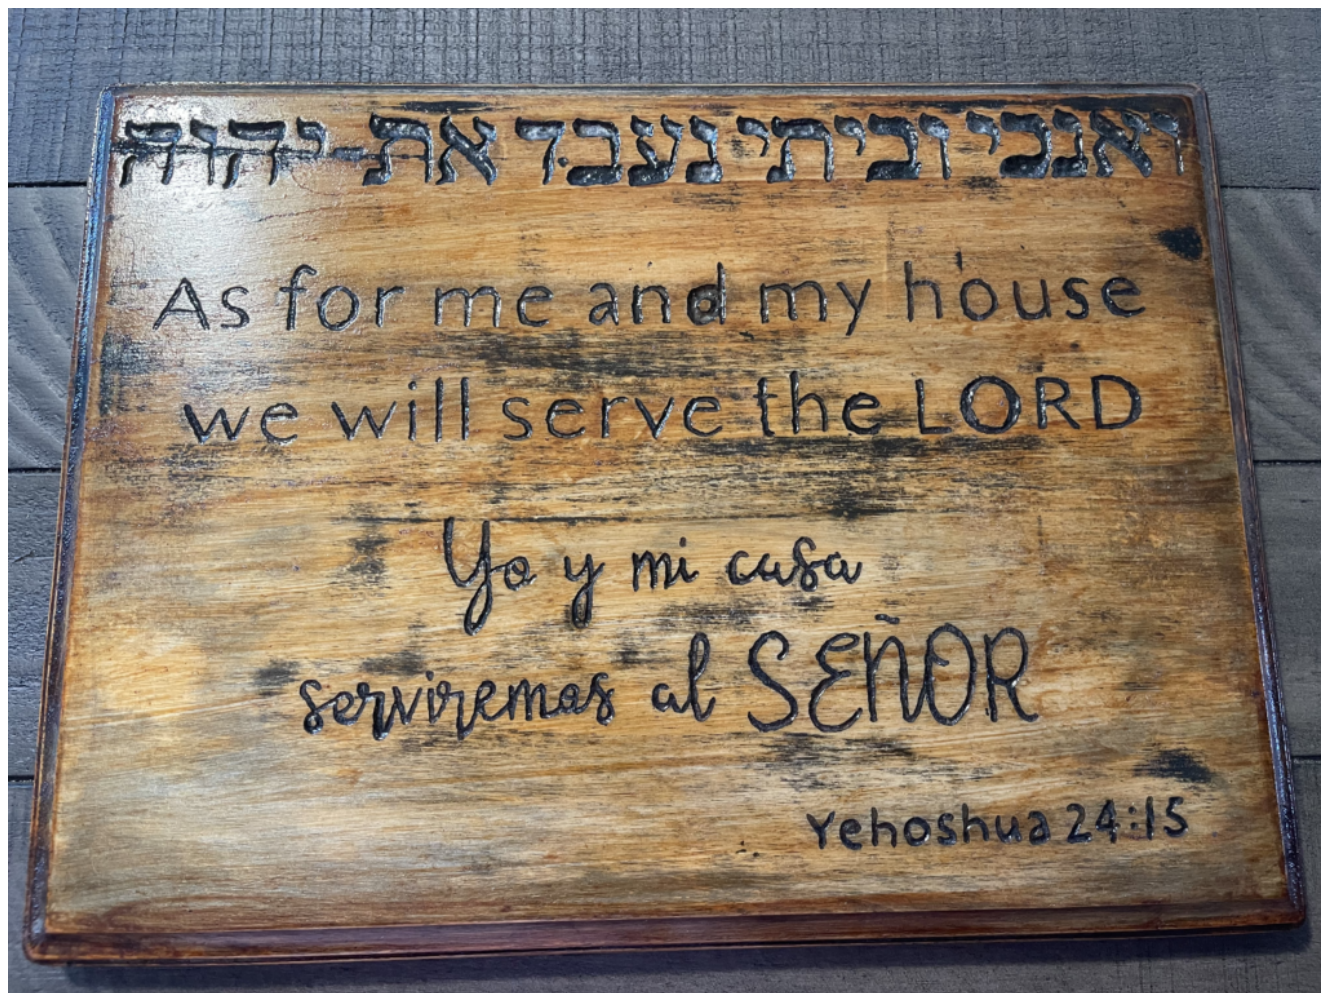 ואנכי וביתי נעבד את-יהוה
As for me and my house
we will serve the LORD
Yo y mi casa
serviremos al SEÑOR
Yehoshua 24:15